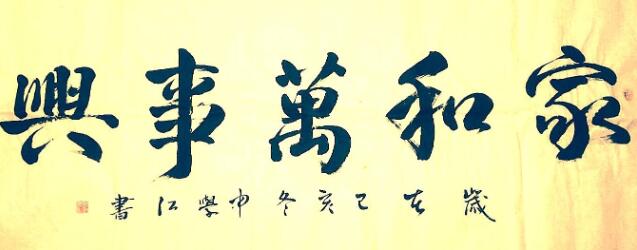 家和萬事興
歲在己亥冬申學江書